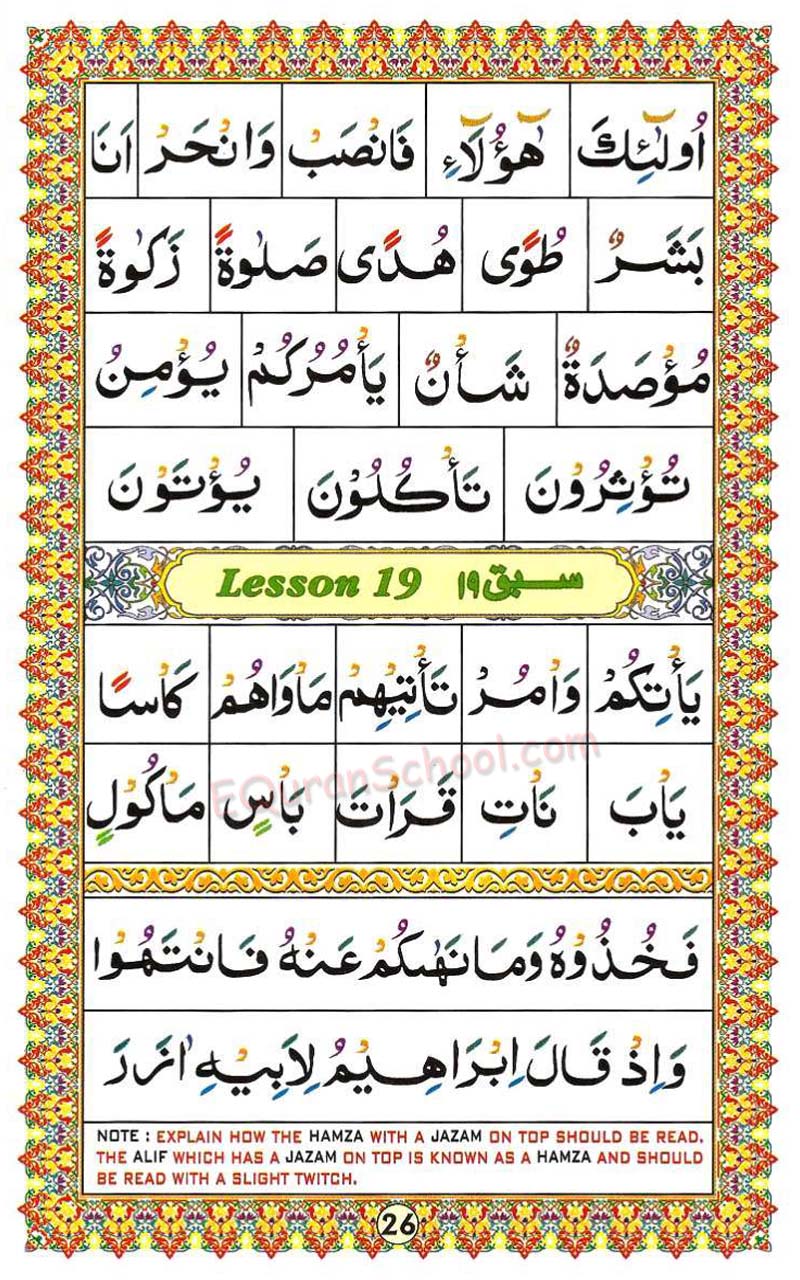 اُولٰٓئِكَ هٰٓؤُلَآءِ فَانْصَبْ وَانْحَرْ اَنَا
بَشَرٌ طُوًى هُدًى صَلٰوةً زَكٰوةً
مُؤْصَدَةٌ شَأْنٌ يَأْمُرُكُمْ يُؤْمِنُ
تُؤْثِرُوْنَ تَأْكُلُوْنَ يُؤْتَوْنَ
Lesson 19 سبق ١٩
يَأْتِكُمْ وَاْمُرْ تَأْتِيْهِمْ مَاْوَاهُمْ كَاْسًا
يَاْبَ نَاْتِ قَرَاْتَ بَاْسٍ مَاْكُوْلٍ
EQuranSchool.com
فَخُذُوْهُ وَمَا نَهٰىكُمْ عَنْهُ فَانْتَهُوْا
وَاِذْ قَالَ اِبْرَاهِيْمُ لِاَبِيْهِ اٰزَرَ
NOTE : EXPLAIN HOW THE HAMZA WITH A JAZAM ON TOP SHOULD BE READ.
THE ALIF WHICH HAS A JAZAM ON TOP IS KNOWN AS A HAMZA AND SHOULD
BE READ WITH A SLIGHT TWITCH.
26